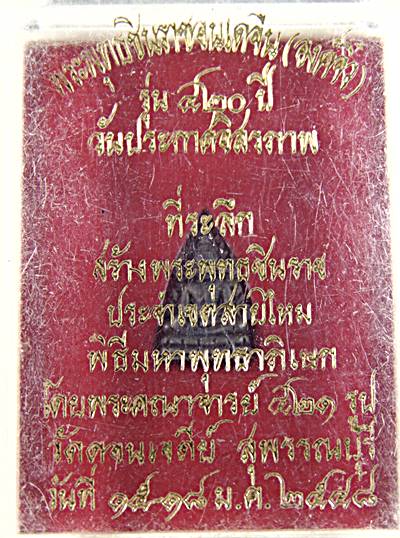 พระพุทธชินราชอินโดจีน (องค์จิ๋ว)
รุ่น ๔๒๐ ปี
วันประกาศอิสรภาพ
ที่ระลึก
สร้างพระพุทธชินราช
ประจำเขตสายไหม
พิธีมหาพุทธาภิเษก
โดยพระคณาจารย์ ๔๒๑ รูป
วัดดอนเจดีย์ สุพรรณบุรี
วันที่ ๑๕-๑๘ ม.ค. ๒๕๔๘